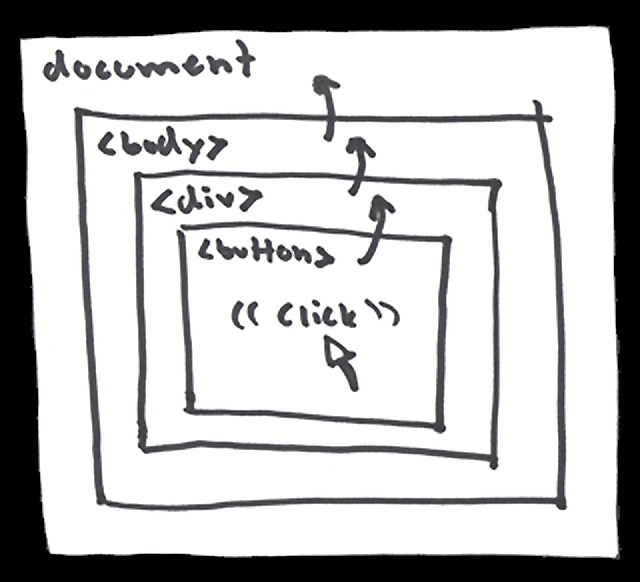 document
<body>
<div>
<button>
(( click ))